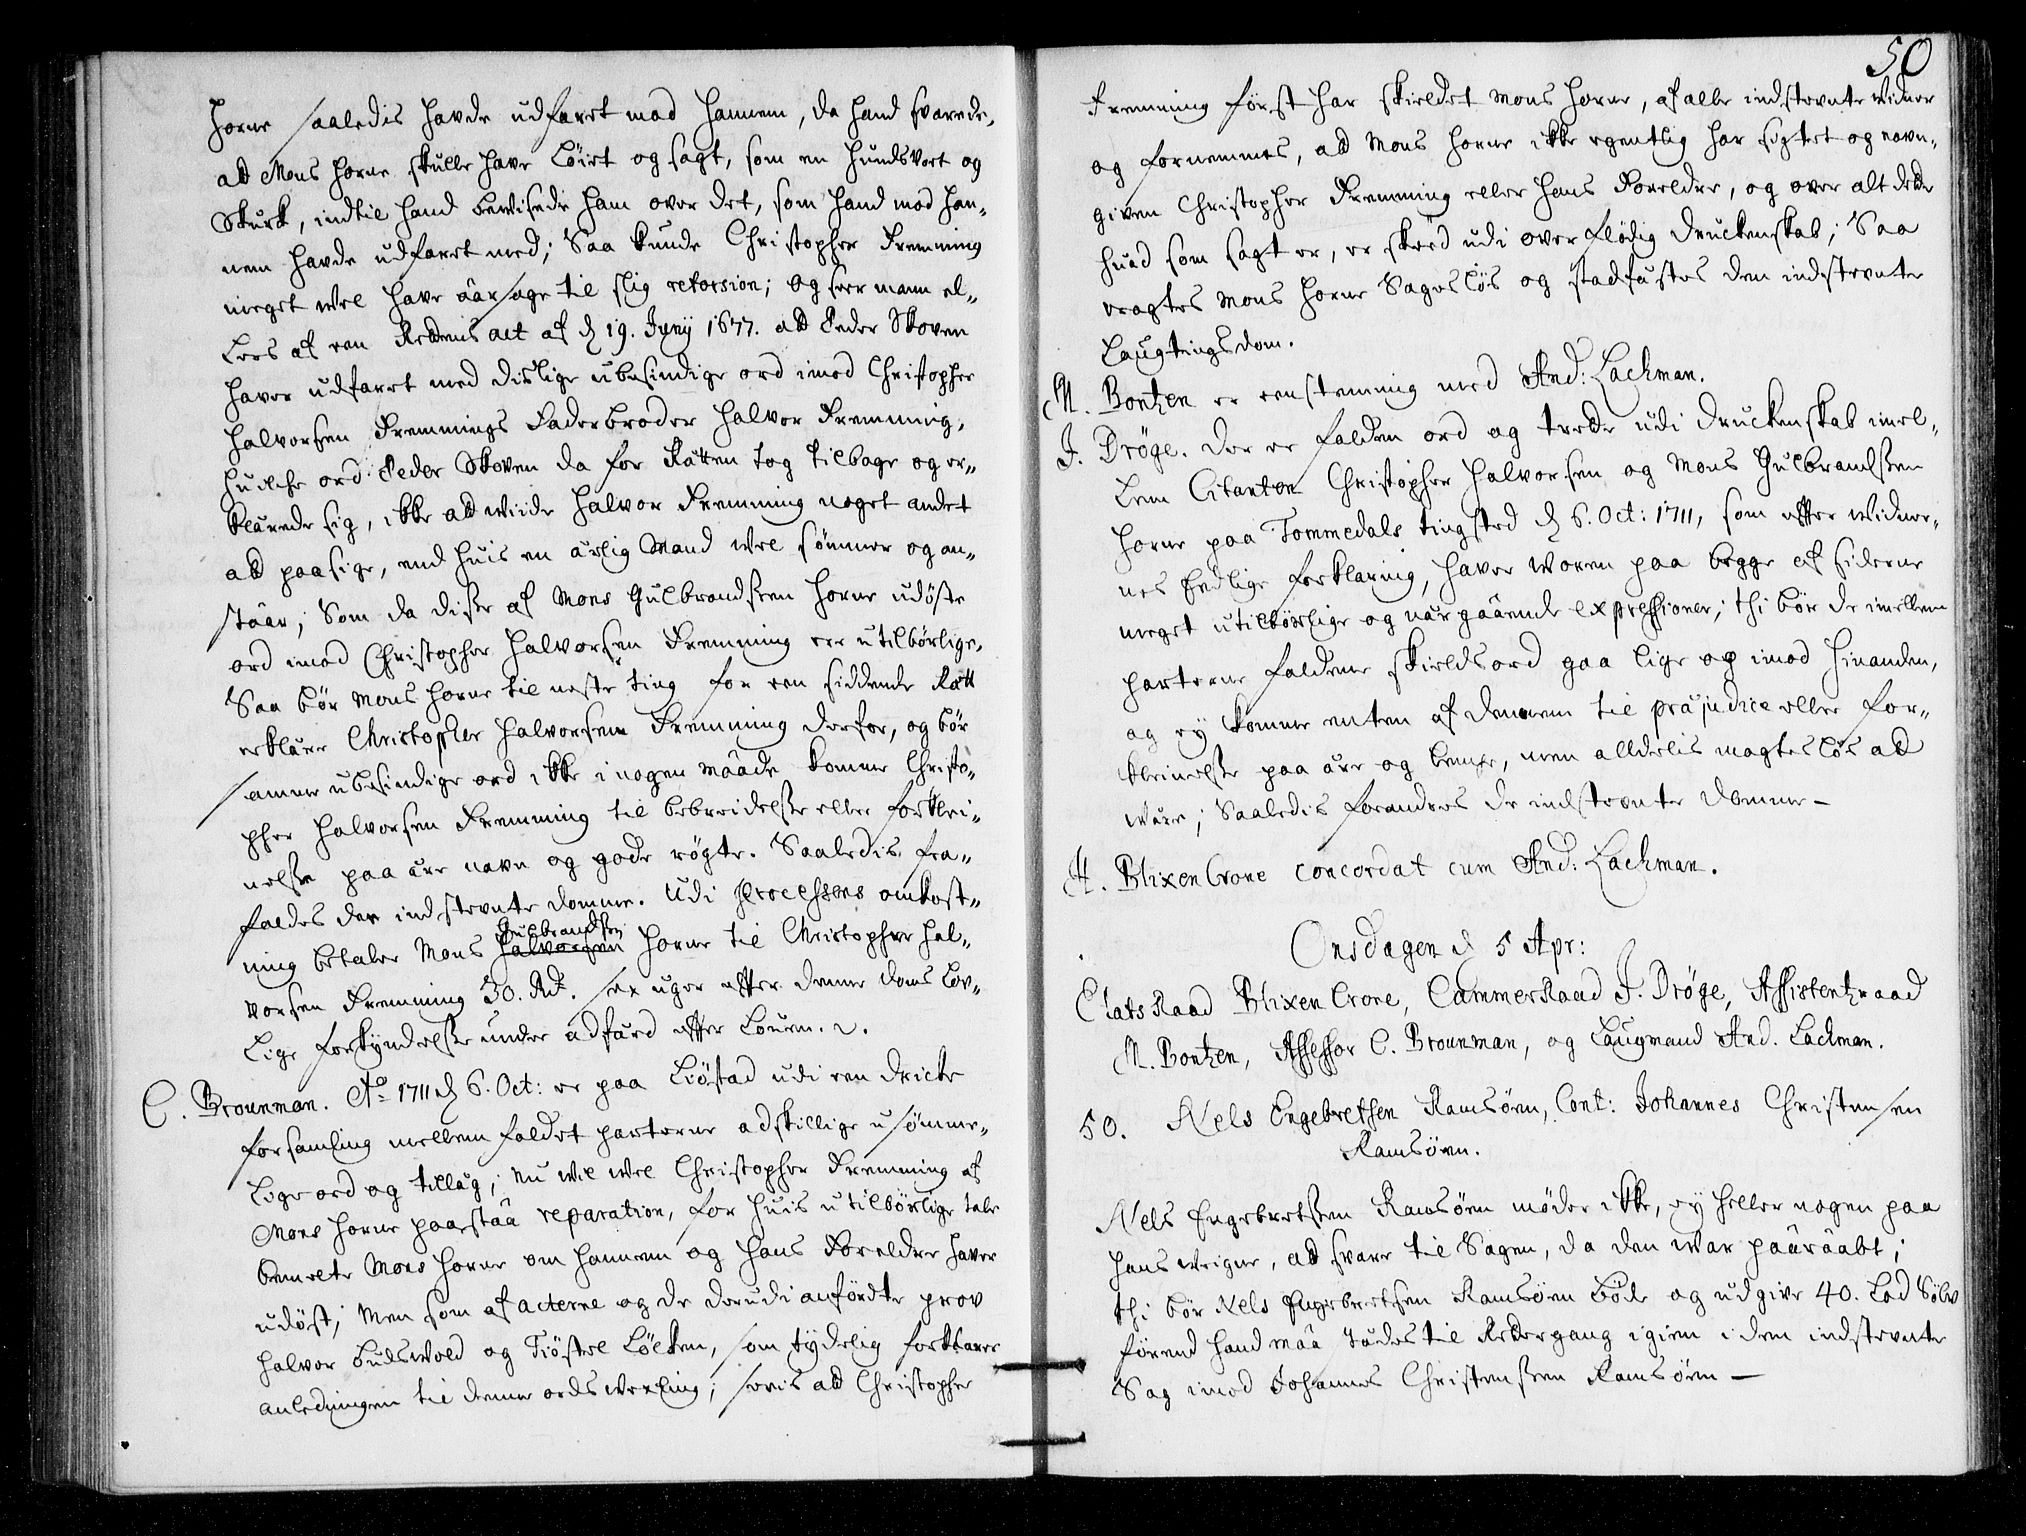 Horne saaledis hafde udfaret mod hannem, da hand svarede,
ad Mons Horne skulle have löiet og sagt, som en Hundsvot og
Skurk, indtil hand bewisede ham over det, som hand mod han„
nem hafde udfaret med; Saa kunde Christopher Fremming
meget wel have aarsage til slig retorsion; og seer mann el„
lers af een Rettens act af d 19. Junij 1677. ad Peder Skoven
haver udfaret med dislige ubesindige ord imod Christopher
Halvorsen Fremmings Faderbroder Halvor Fremming,
huilche ord Peder Skoven da for Rätten tog tilbage og er„
klärede sig, ikke ad wiide Halvor Fremming noget andet
ad paasige, end huis en ärlig Mand wel sömmer og an„
staar; Som da disse af Mons Gulbrandsen Horne udöste
ord imod Christopher Halvorsen Fremming ere utilbörlige,
Saa bör Mons Horne til neste ting for een siddende Rätt
erkläre Christopher Halvorsen Fremming derfor, og bör
samme ubesindige ord ikke i nogen maade komme Christo„
pher Halvorsen Fremming til bebreidelse eller forklei„
nelse paa ære navn og gode rögte. Saaledis fra„
faldes den indstevnte domme. Udi Processens omkost„
ning betaler Mons Halvorsen Gulbrandsen Horne til Christopher Hal„
vorsen Fremming 30. Rd. sex uger efter denne doms lov„
lige forkyndelse under adfärd efter Louen.
C. Brounman. Ao 1711 d 6. Oct: er paa Liöstad udi een dricke
forsamling mellem faldet parterne adskillige usömme„
lige ord og tilläg; nu wil wel Christopher Fremming af
Mons Horne paastaa reparation, for huis utilbörlige tale
bemelte Mons Horne om hannem og hans Foreldre haver
udöst; Men som af acterne og de derudi anfördte prov
Halvor Budswold og Tiöstel Lölken, som tydelig forklarer
anledningen til denne ords wexling; sees ad Christopher
50
Fremming först har skieldet Mons Horne, af alle indstevnte Widner
og fornemmes, ad Mons Horne ikke egentlig har sigtet og navn„
given Christopher Fremming eller hans Foreldre, og over alt dette
huad som sagt er, er skeed udi overflödig druckenskab; Saa
eragtes Mons Horne Sageslös og stadfæstes den indstevnte
Laugtingsdom.
M. Bontzen er eenstemmig med And: Lachman.
J. Dröge. Der er falden ord og trette udi druckenskab imel„
lem Citanten Christopher Halvorsen og Mons Gulbrandsen
Horne paa Tommedals tingsted d 6. Oct: 1711, som efter Widner„
nes Eedlige forklaring, haver woren paa begge af siderne
meget utilbörlige og närgaaende expressioner; thi bör de imellem
parterne faldene skieldsord gaa lige op imod hinanden,
og ey komme enten af dennem til præjudice eller for„
kleinelse paa ære og lempe, men alldelis magteslös ad
være; Saaledis forandres de indstevnte domme –
H. Blixen Crone concordat cum And: Lachman.
Onsdagen d 5 Apr:
Etats Raad Blixen Crone, Cammer Raad J. Dröge, Assistentzraad
M. Bontzen, Assessor C. Brounman, og Laugmand And. Lachman.
50. Nels Engebretsen Ramsöen, Cont: Johannes Christensen
Ramsöen.
Nels Engebretsen Ramsöen möder ikke, ey heller nogen paa
hans weigne, ad svare til Sagen, da den war paaraabt;
thi bör Nels Engebretsen Ramsöen böde og udgive 40. Lod Sölv
förend hand maa stedes til Rettergang igien i den indstevnte
Sag imod Johannes Christensen Ramsöen –